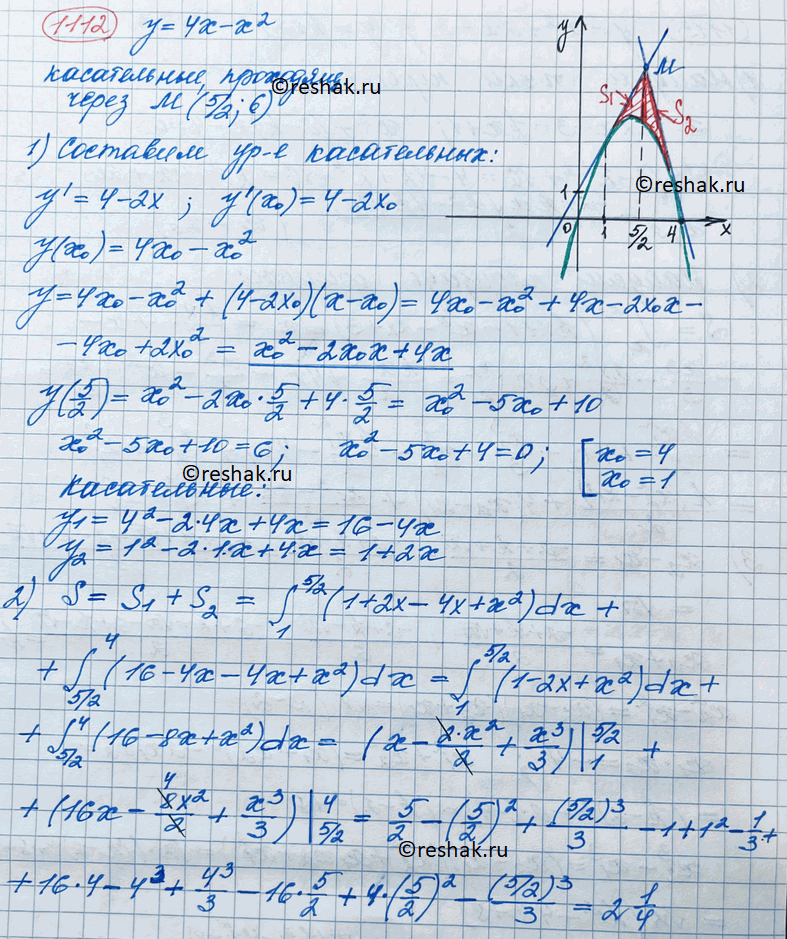 1112 y = 4x - x²
касательные, проходящие
через M (5/2; 6)
1) Составим ур-е касательных:
y' = 4 - 2x ; y'(x₀) = 4 - 2x₀
y(x₀) = 4x₀ - x₀²
y = 4x₀ - x₀² + (4 - 2x₀)(x - x₀) = 4x₀ - x₀² + 4x - 2x₀x -
- 4x₀ + 2x₀² = x₀² - 2x₀x + 4x
y(5/2) = x₀² - 2x₀·5/2 + 4·5/2 = x₀² - 5x₀ + 10
x₀² - 5x₀ + 10 = 6 ; x₀² - 5x₀ + 4 = 0 ; [x₀ = 4
x₀ = 1
касательные:
y₁ = 4² - 2·4x + 4x = 16 - 4x
y₂ = 1² - 2·1·x + 4·x = 1 + 2x
2) S = S₁ + S₂ = ∫₁^(5/2) (1 + 2x - 4x + x²) dx +
+ ∫_(5/2)^4 (16 - 4x - 4x + x²) dx = ∫₁^(5/2) (1 - 2x + x²) dx +
+ ∫_(5/2)^4 (16 - 8x + x²) dx = (x - 2·x²/2 + x³/3) |₁^(5/2) +
4
+ (16x - 8x²/2 + x³/3) |_(5/2)^4 = 5/2 - (5/2)² + (5/2)³/3 - 1 + 1² - 1/3 +
+ 16·4 - 4³ + 4³/3 - 16·5/2 + 4·(5/2)² - (5/2)³/3 = 2 1/4
y
M
S₁
S₂
1
0 1 5/2 4 x
©reshak.ru
©reshak.ru
©reshak.ru
©reshak.ru